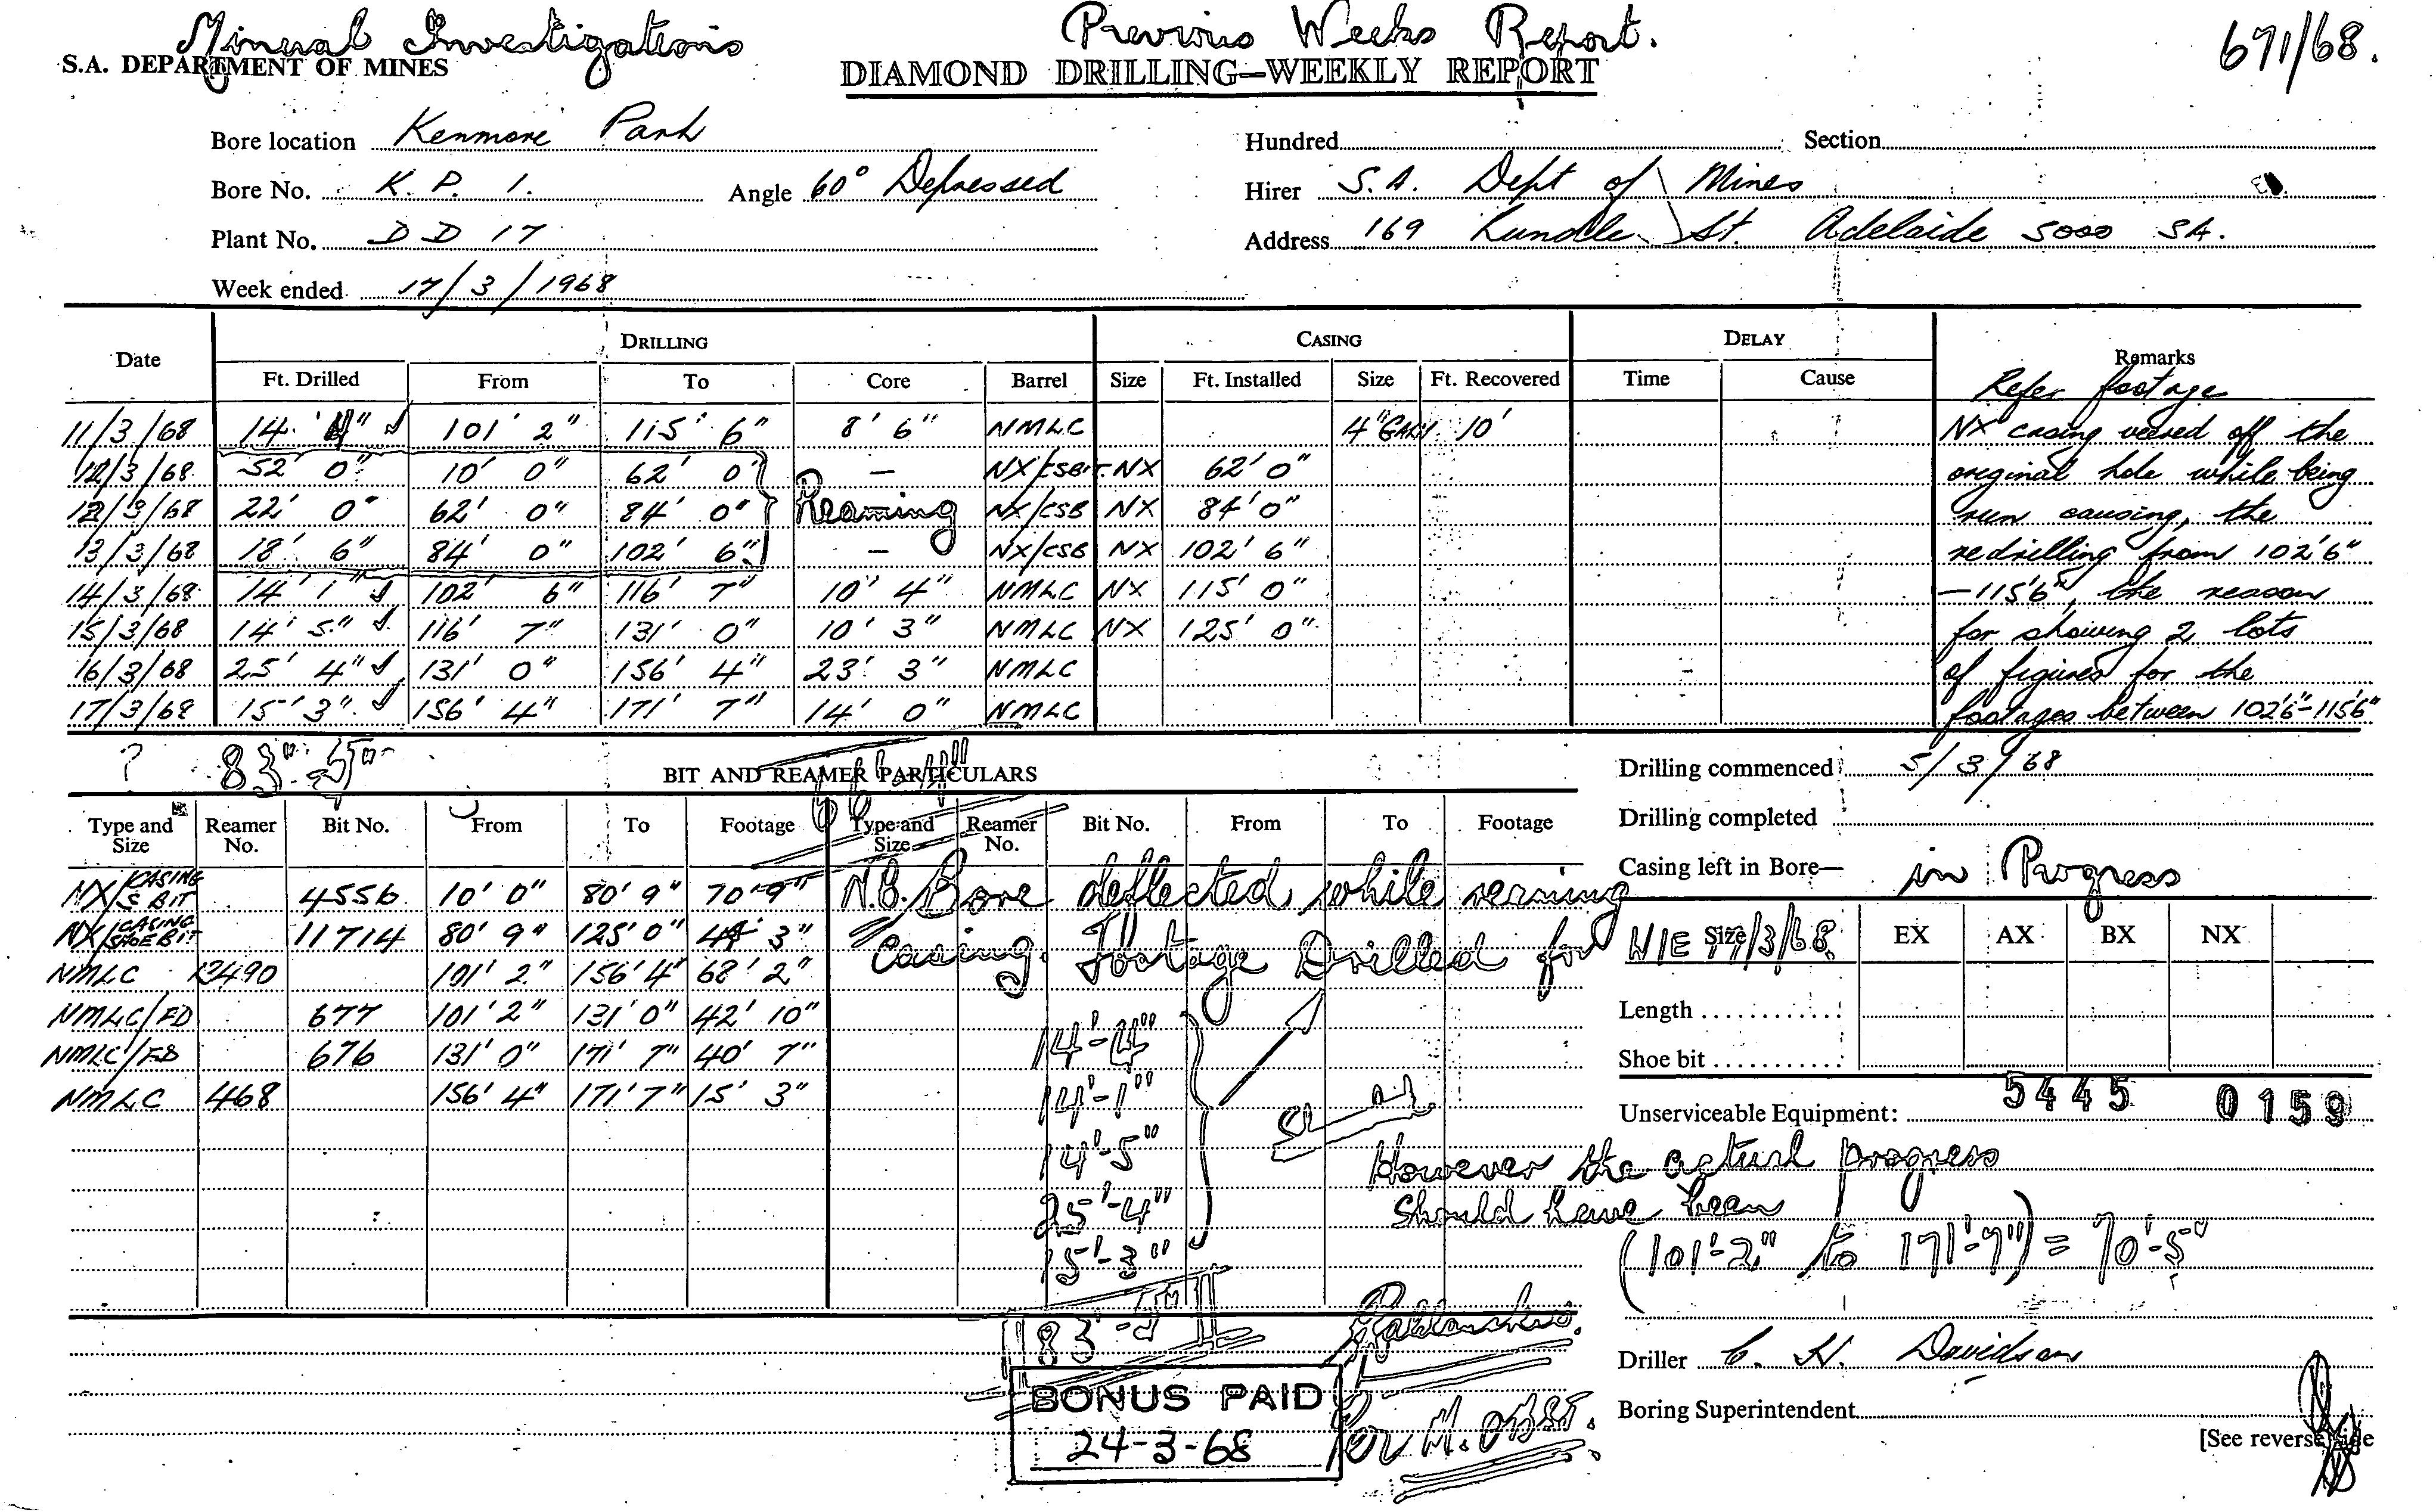 Minual Investigations Previous Weeks Report. 671/68.
S.A. DEPARTMENT OF MINES DIAMOND DRILLING—WEEKLY REPORT
Bore location Kenmore Park Hundred Section
Bore No. K. P. 1. Angle 60° Depressed Hirer S.A. Dept of Mines
Plant No. D D 17 Address 169 Rundle St. Adelaide 5000 SA.
Week ended 17/3/1968
Date DRILLING CASING DELAY Remarks
Ft. Drilled From To Core Barrel Size Ft. Installed Size Ft. Recovered Time Cause Refer footage
11/3/68 14' 4" 101' 2" 115' 6" 8' 6" NMLC 4" GALV 10' NX casing veered off the
12/3/68 52' 0" 10' 0" 62' 0" — NX/CSBIT NX 62' 0" original hole while being
12/3/68 22' 0" 62' 0" 84' 0" Reaming NX/CSB NX 84' 0" run causing, the
13/3/68 18' 6" 84' 0" 102' 6" — NX/CSB NX 102' 6" redrilling from 102'6"
14/3/68 14' 1" 102' 6" 116' 7" 10' 4" NMLC NX 115' 0" —115'6", the reason
15/3/68 14' 5" 116' 7" 131' 0" 10' 3" NMLC NX 125' 0" for showing 2 lots
16/3/68 25' 4" 131' 0" 156' 4" 23' 3" NMLC of figures for the
17/3/68 15' 3" 156' 4" 171' 7" 14' 0" NMLC footages between 102'6"-115'6"
? 83'-5"
BIT AND REAMER PARTICULARS Drilling commenced 5/3/68
Type and Size Reamer No. Bit No. From To Footage Type and Size Reamer No. Bit No. From To Footage Drilling completed
Casing left in Bore— in Progress
NX/CASING S BIT 4556 10' 0" 80' 9" 70' 9" N.B. Bore deflected while reaming
NX/CASING SHOE BIT 11714 80' 9" 125' 0" 44' 3" Casing. Footage Drilled for W/E 17/3/68. Size EX AX BX NX
NMLC 2490 101' 2" 156' 4" 68' 2"
NMLC/FD 677 101' 2" 131' 0" 42' 10" 14'-4" Length
NMLC/FD 676 131' 0" 171' 7" 40' 7" Shoe bit
NMLC 468 156' 4" 171' 7" 15' 3" 14'-1" Unserviceable Equipment: 5445 0159
14'-5" However the actual progress
25'-4" should have been
15'-3" (101'-2" to 171'-7") = 70'-5"
83'-5"
Driller C. H. Davidson
BONUS PAID Boring Superintendent
24-3-68 [See reverse side